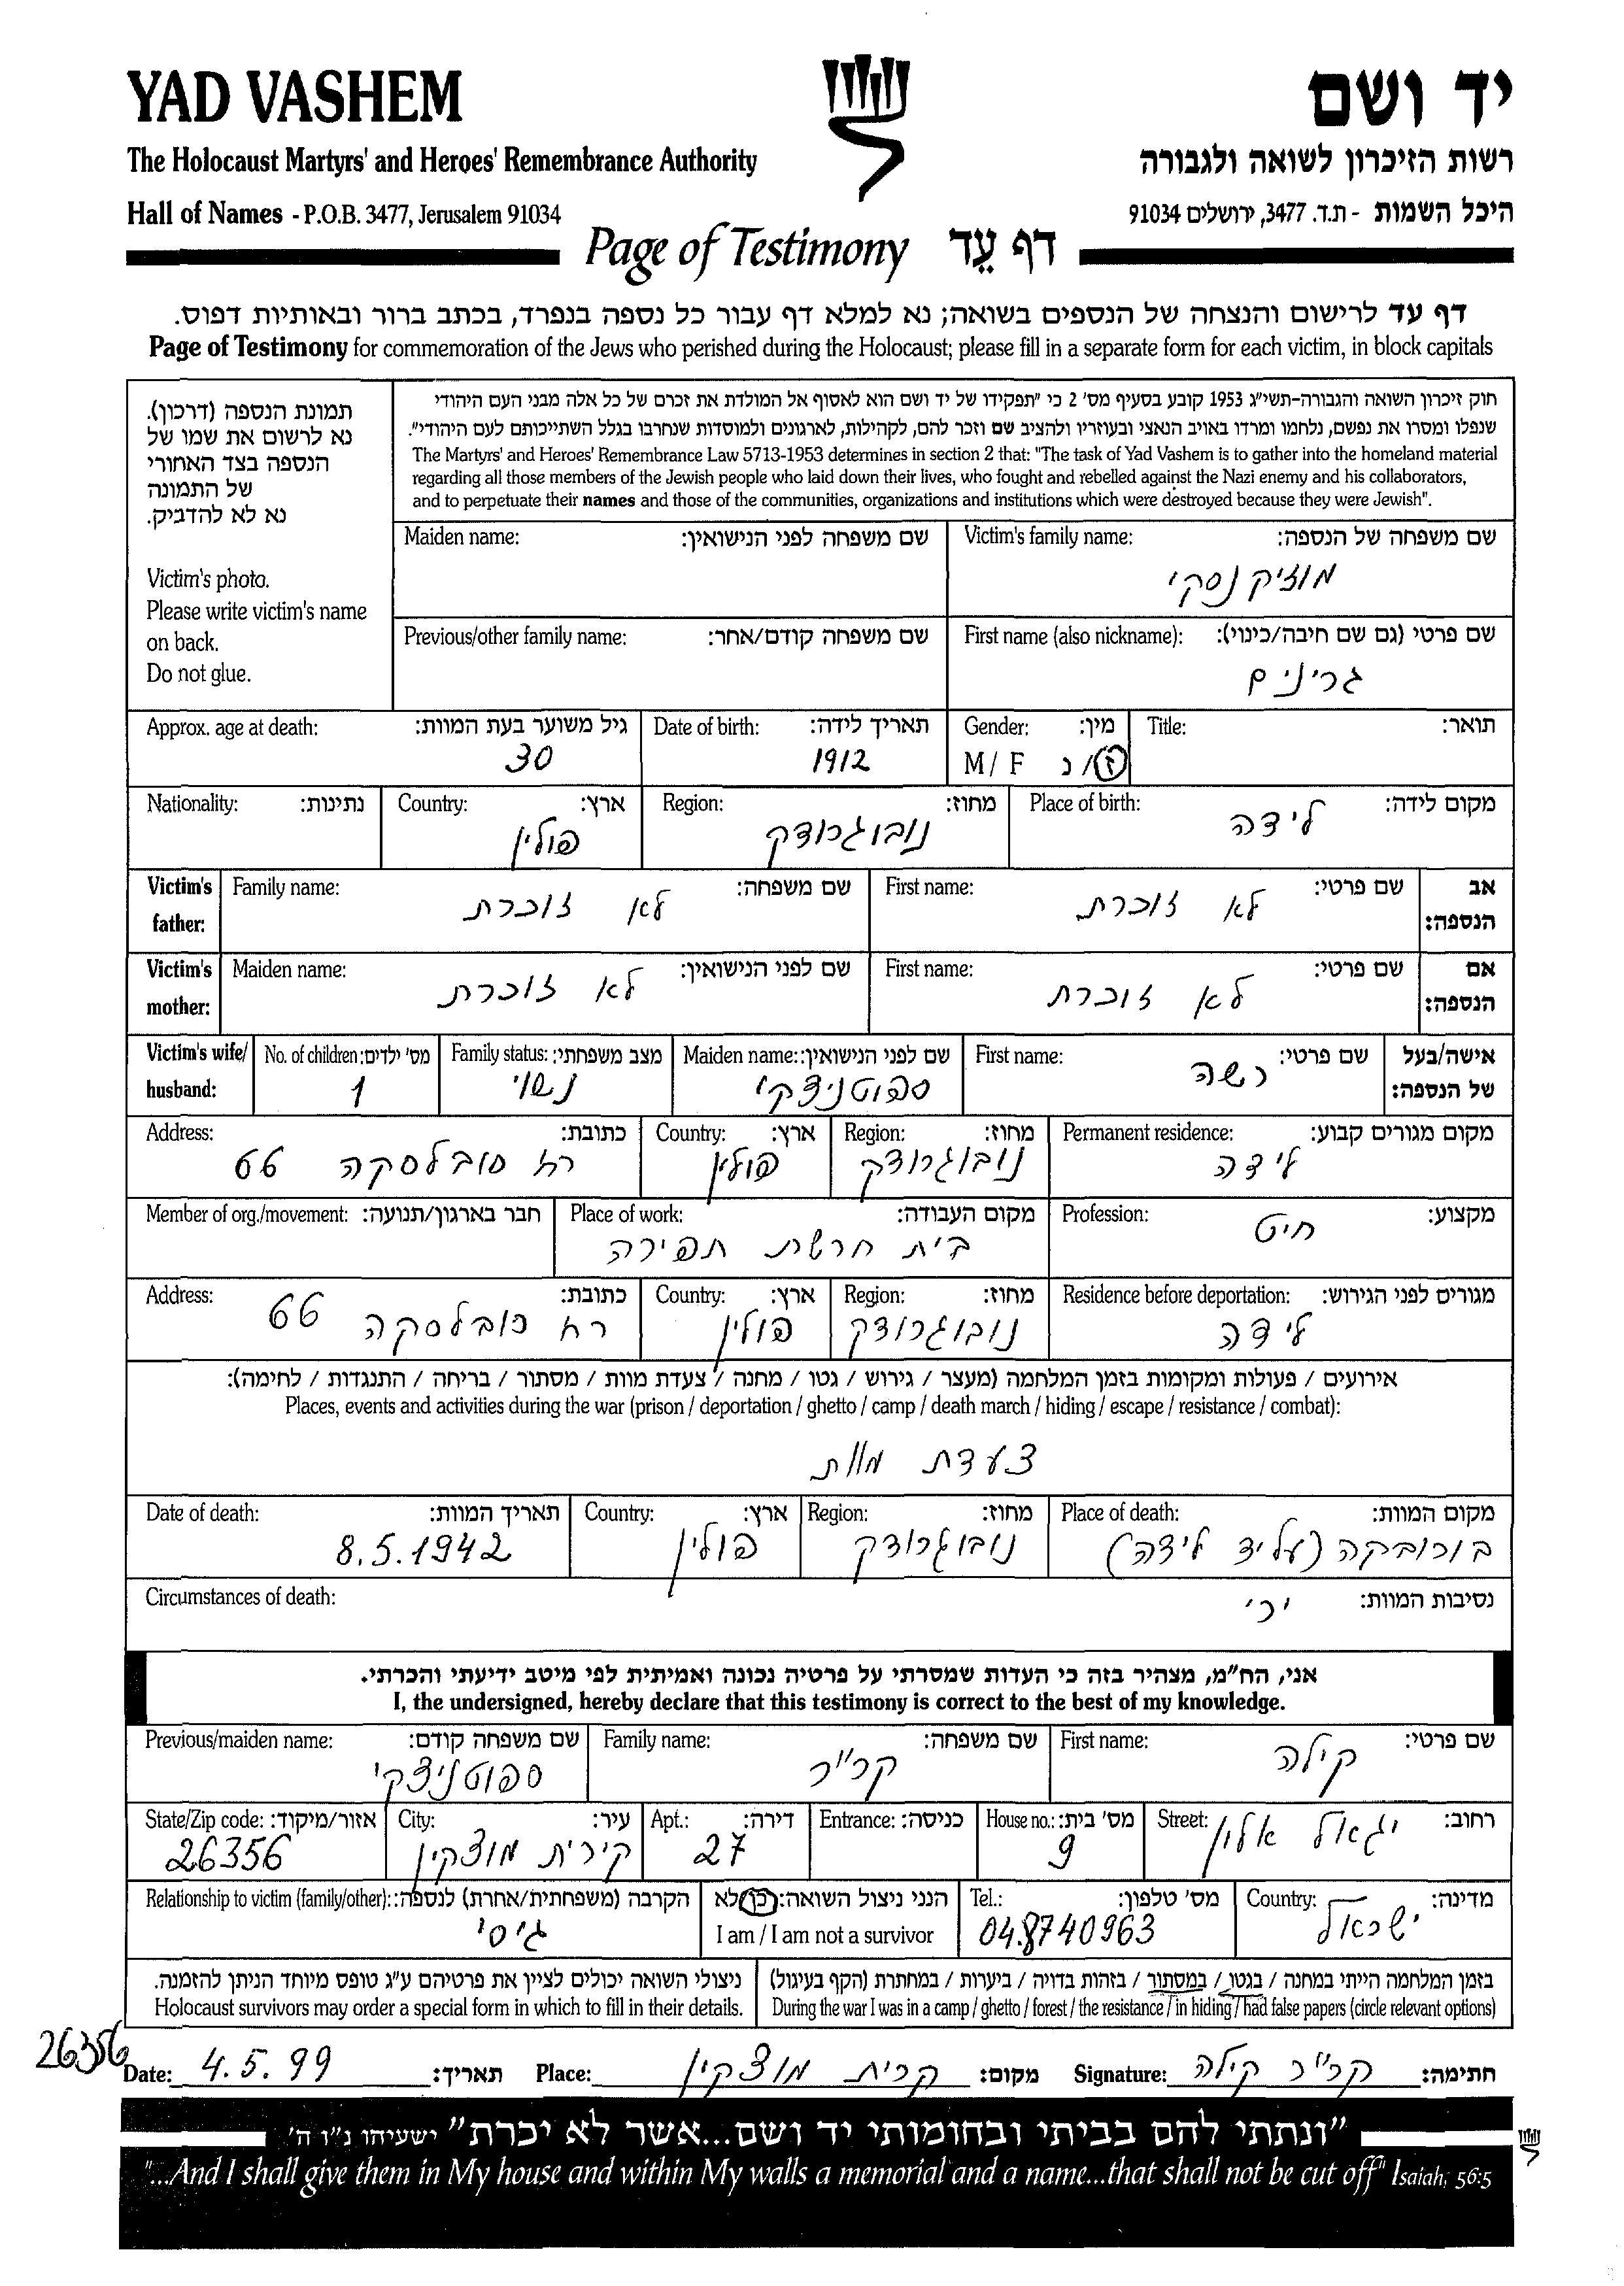 YAD VASHEM
יד ושם
The Holocaust Martyrs' and Heroes' Remembrance Authority
רשות הזיכרון לשואה ולגבורה
Hall of Names - P.O.B. 3477, Jerusalem 91034
היכל השמות - ת.ד. 3477, ירושלים 91034
Page of Testimony דף עֵד
דף עד לרישום והנצחה של הנספים בשואה; נא למלא דף עבור כל נספה בנפרד, בכתב ברור ובאותיות דפוס.
Page of Testimony for commemoration of the Jews who perished during the Holocaust; please fill in a separate form for each victim, in block capitals
תמונת הנספה (דרכון).
נא לרשום את שמו של
הנספה בצד האחורי
של התמונה
נא לא להדביק.
Victim's photo.
Please write victim's name
on back.
Do not glue.
חוק זיכרון השואה והגבורה-תשי"ג 1953 קובע בסעיף מס' 2 כי "תפקידו של יד ושם הוא לאסוף אל המולדת את זכרם של כל אלה מבני העם היהודי
שנפלו ומסרו את נפשם, נלחמו ומרדו באויב הנאצי ובעוזריו ולהציב שם וזכר להם, לקהילות, לארגונים ולמוסדות שנחרבו בגלל השתייכותם לעם היהודי".
The Martyrs' and Heroes' Remembrance Law 5713-1953 determines in section 2 that: "The task of Yad Vashem is to gather into the homeland material
regarding all those members of the Jewish people who laid down their lives, who fought and rebelled against the Nazi enemy and his collaborators,
and to perpetuate their names and those of the communities, organizations and institutions which were destroyed because they were Jewish".
Victim's family name: שם משפחה של הנספה:
מוזיקנסקי
Maiden name: שם משפחה לפני הנישואין:
First name (also nickname): שם פרטי (גם שם חיבה/כינוי):
גרינים
Previous/other family name: שם משפחה קודם/אחר:
Title: תואר:
Gender: מין:
M / F ז/נ
Date of birth: תאריך לידה:
1912
Approx. age at death: גיל משוער בעת המוות:
30
Place of birth: מקום לידה:
לידה
Region: מחוז:
נובוגרודק
Country: ארץ:
פולין
Nationality: נתינות:
Victim's father: אב הנספה:
First name: שם פרטי:
לא זוכרת
Family name: שם משפחה:
לא זוכרת
Victim's mother: אם הנספה:
First name: שם פרטי:
לא זוכרת
Maiden name: שם לפני הנישואין:
לא זוכרת
Victim's wife/ husband: אישה/בעל של הנספה:
First name: שם פרטי:
רשה
Maiden name: שם לפני הנישואין:
ספוטניצקי
Family status: מצב משפחתי:
נשוי
No. of children: מס' ילדים:
1
Permanent residence: מקום מגורים קבוע:
לידה
Region: מחוז:
נובוגרודק
Country: ארץ:
פולין
Address: כתובת:
רח סובלסקה 66
Profession: מקצוע:
חייט
Place of work: מקום העבודה:
בית חרשת תפירה
Member of org./movement: חבר בארגון/תנועה:
Residence before deportation: מגורים לפני הגירוש:
לידה
Region: מחוז:
נובוגרודק
Country: ארץ:
פולין
Address: כתובת:
רח סובלסקה 66
אירועים / פעולות ומקומות בזמן המלחמה (מעצר / גירוש / גטו / מחנה / צעדת מוות / מסתור / בריחה / התנגדות / לחימה):
Places, events and activities during the war (prison / deportation / ghetto / camp / death march / hiding / escape / resistance / combat):
צעדת מוות
Place of death: מקום המוות:
בורובקה (על יד לידה)
Region: מחוז:
נובוגרודק
Country: ארץ:
פולין
Date of death: תאריך המוות:
8.5.1942
Circumstances of death: נסיבות המוות:
ירי
אני, הח"מ, מצהיר בזה כי העדות שמסרתי על פרטיה נכונה ואמיתית לפי מיטב ידיעתי והכרתי.
I, the undersigned, hereby declare that this testimony is correct to the best of my knowledge.
First name: שם פרטי:
קילה
Family name: שם משפחה:
קרייר
Previous/maiden name: שם משפחה קודם:
ספוטניצקי
Street: רחוב:
יגאל אלון
House no.: מס' בית:
9
Entrance: כניסה:
Apt.: דירה:
27
City: עיר:
קירית מוצקין
State/Zip code: אזור/מיקוד:
26356
Country: מדינה:
ישראל
Tel.: מס' טלפון:
04.8740963
הנני ניצול השואה: כן/לא
I am / I am not a survivor
Relationship to victim (family/other): הקרבה (משפחתית/אחרת) לנספה:
גיסי
בזמן המלחמה הייתי במחנה / בגטו / במסתור / בזהות בדויה / ביערות / במחתרת (הקף בעיגול)
During the war I was in a camp / ghetto / forest / the resistance / in hiding / had false papers (circle relevant options)
ניצולי השואה יכולים לציין את פרטיהם ע"ג טופס מיוחד הניתן להזמנה.
Holocaust survivors may order a special form in which to fill in their details.
26356
Date: 4.5.99 תאריך: Place: קרית מוצקין מקום: Signature: קרייר קילה חתימה:
"ונתתי להם בביתי ובחומותי יד ושם...אשר לא יכרת" ישעיהו נ"ו ה'
"...And I shall give them in My house and within My walls a memorial and a name...that shall not be cut off" Isaiah, 56:5